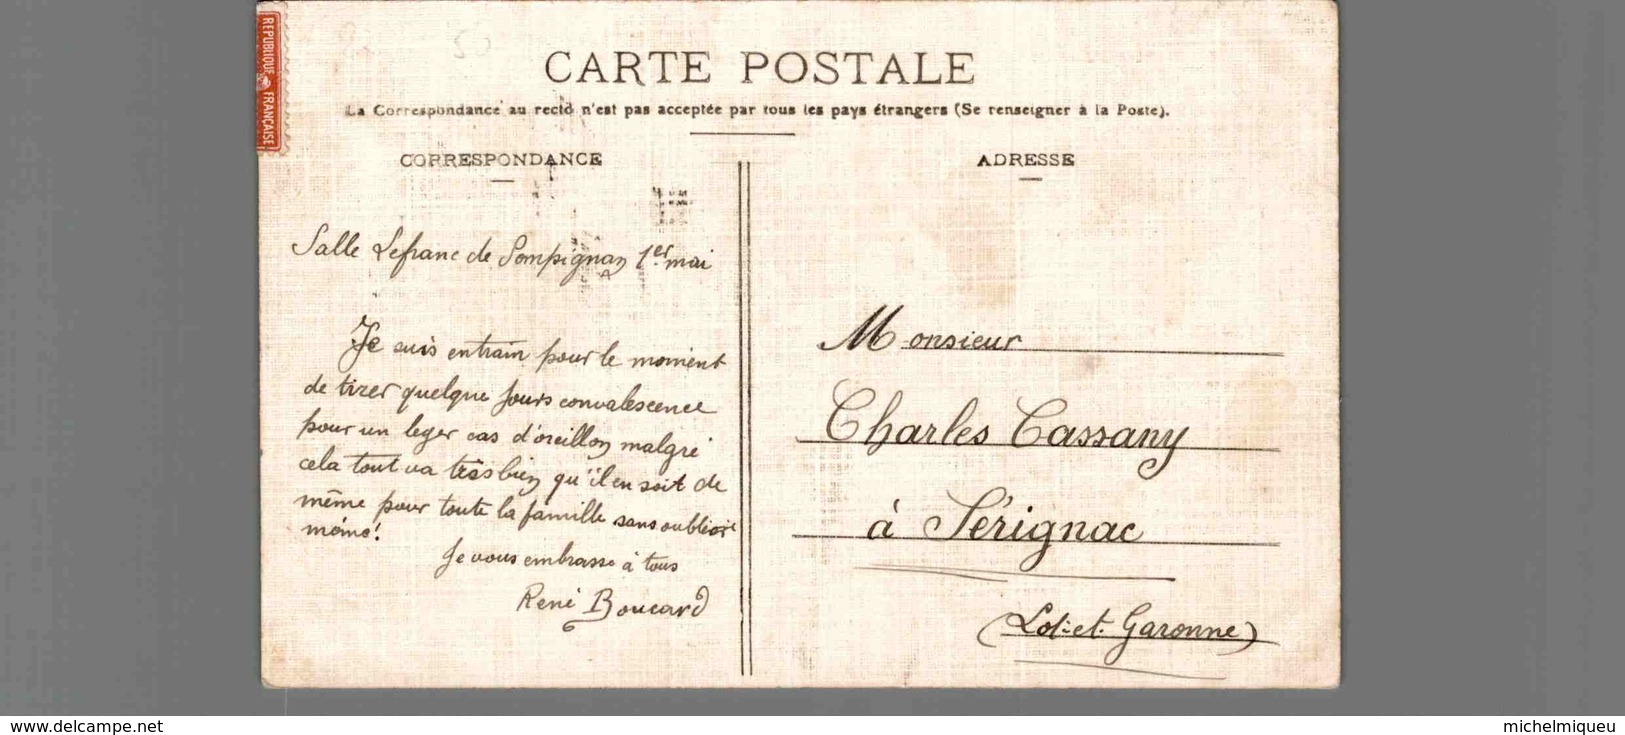 REPUBLIQUE FRANÇAISE
50
CARTE POSTALE
La Correspondance au recto n'est pas acceptée par tous les pays étrangers (Se renseigner à la Poste).
CORRESPONDANCE
Salle Lefranc de Pompignan 1er mai
Je suis entrain pour le moment
de tirer quelque jours convalescence
pour un leger cas d'oreillon malgré
cela tout va très bien qu'il en soit de
même pour toute la famille sans oublier
mémé!
Je vous embrasse à tous
René Boucard
ADRESSE
Monsieur
Charles Cassany
à Sérignac
(Lot-et-Garonne)
www.delcampe.net
michelmiqueu